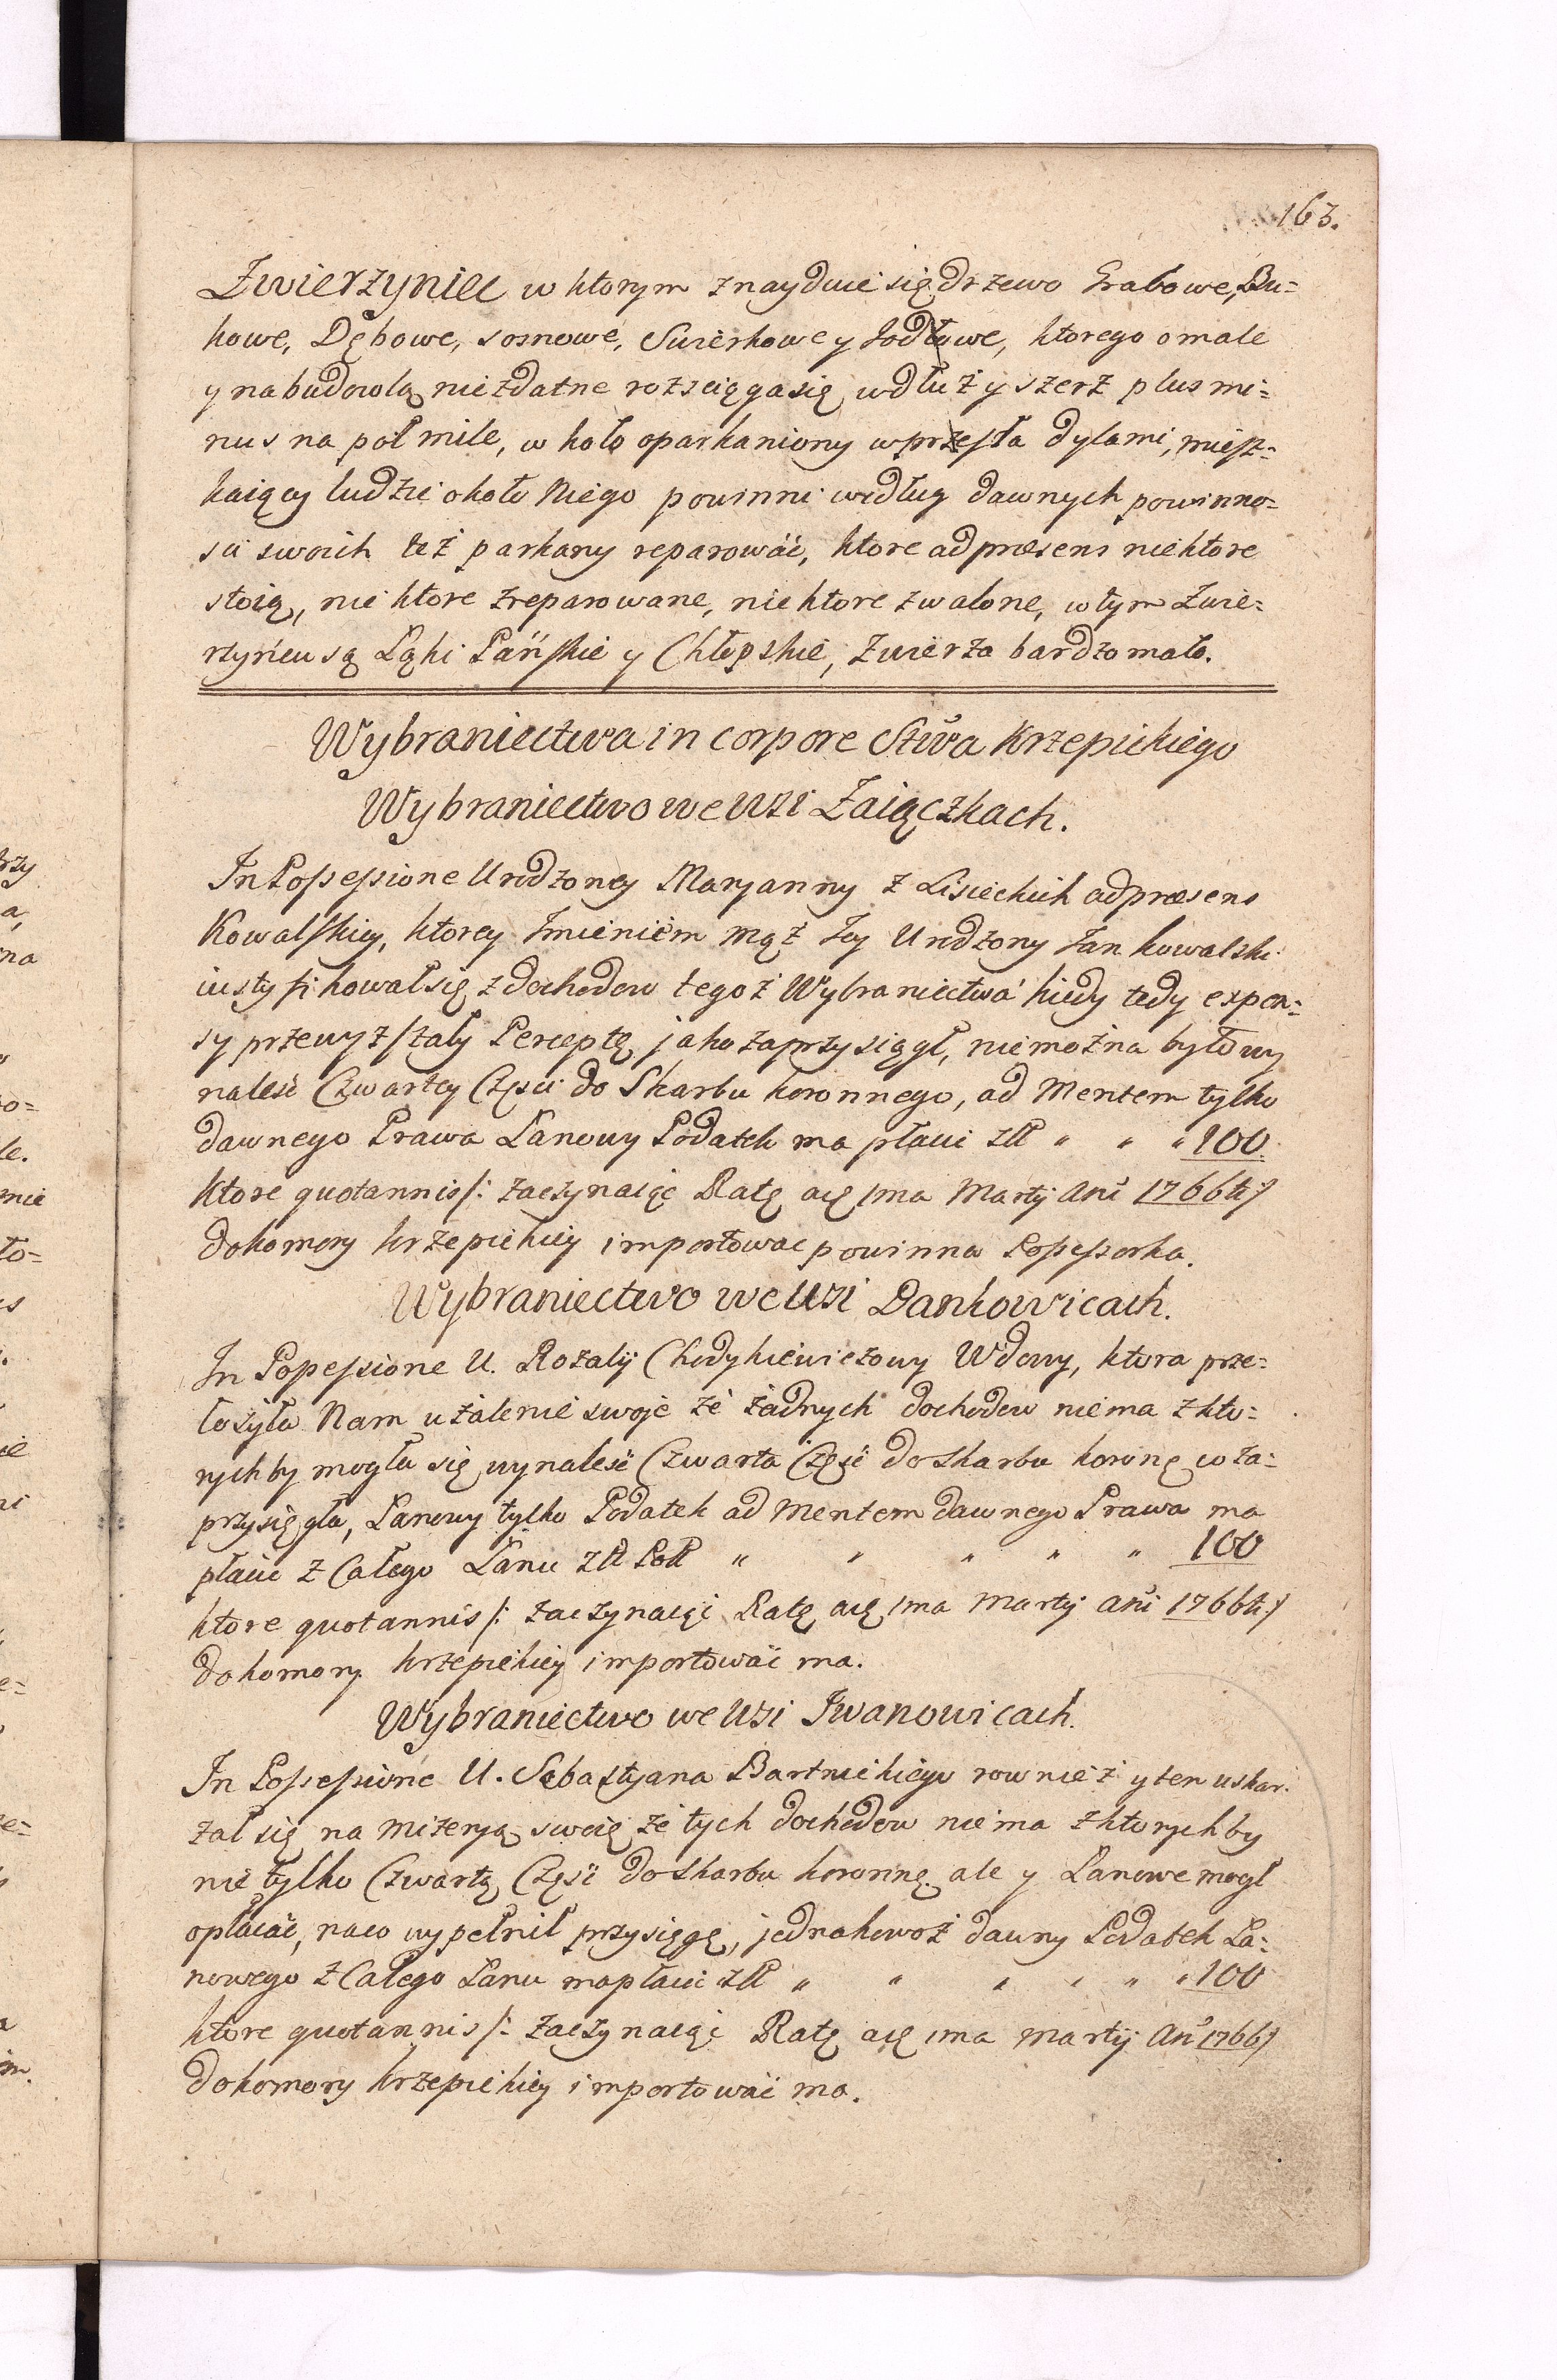 163.
Zwierzyniec w ktorym znayduie się drzewo Grabowe, Bu=
kowe, Dębowe, sosnowe, Swierkowe y Jodłowe, ktorego o male
y na budowlą niezdatne rozsciąga się wdłuż y szerz plus mi=
nus na poł mile, w koło oparkaniony w przęsła dylami, miesz=
kaiący ludzie około Niego powinni według dawnych powinno=
sci swoich też parkany reparowáć, ktore ad præsens niektore
stoią, niektore zreparowane, niektore zwalone, w tym Zwie=
rzyńcu są Łąki Pańskie y Chłopskie, Zwierza bardzo mało.
Wybraniectwa in corpore Stwa Krzepickiego
Wybraniectwo we Wsi Zaiączkach.
In Possessione Urodzoney Maryanny z Lisieckich ad præsens
Kowalskiey, ktorey Jmieniem mąż Jey Urodzony Jan Kowalski
iustyfikował się z dochodow tegoż Wybraniectwa kiedy tedy expen=
sy przewyższały Perceptę jako zaprzysiągł, niemożna było wy
naleść Czwartey Części do Skarbu koronnego, ad Mentem tylko
dawnego Prawa Łanowy Podatek ma płacić zł " " " 100.
Ktore quotannis /: zaczynaiąc Ratę a 1ma Martij Ani 1766ti :/
do komory krzepickiey importowac powinna Possessorka.
Wybraniectwo we Wsi Dankowicach.
In Possessione U. Rozalij Chodykiewiczowy Wdowy, ktora prze=
łożyła Nam użalenie swoje że żadnych dochodow niema z kto=
rychby mogła się wynaleść Czwarta Część do Skarbu koronnę co za=
przysięgła, Łanowy tylko Podatek ad Mentem dawnego Prawa ma
płacić z Całego Łanu zł Pol " " " " " 100
ktore quotannis /: zaczynaiąć Ratę a 1ma Martij Ani 1766ti :/
do komory krzepickiey importowáć ma.
Wybraniectwo we Wsi Jwanowicach.
In Possessione U. Sebastyana Bartnickiego rownież y ten uskar=
żał się na mizeryą swoię że tych dochodow niema z ktorychby
nie tylko Czwartą Część do Skarbu koronnę. ale y Łanowe mogł
opłacáć, na co wypełnił przysięgę, jednakowoż dawny Podatek Ła=
nowego z Całego Łanu ma płacić zł " " " " " " 100
ktore quotannis /: zaczynaiąć Ratę a 1ma Martij Ani 1766 :/
do komory krzepickiey importowáć ma.